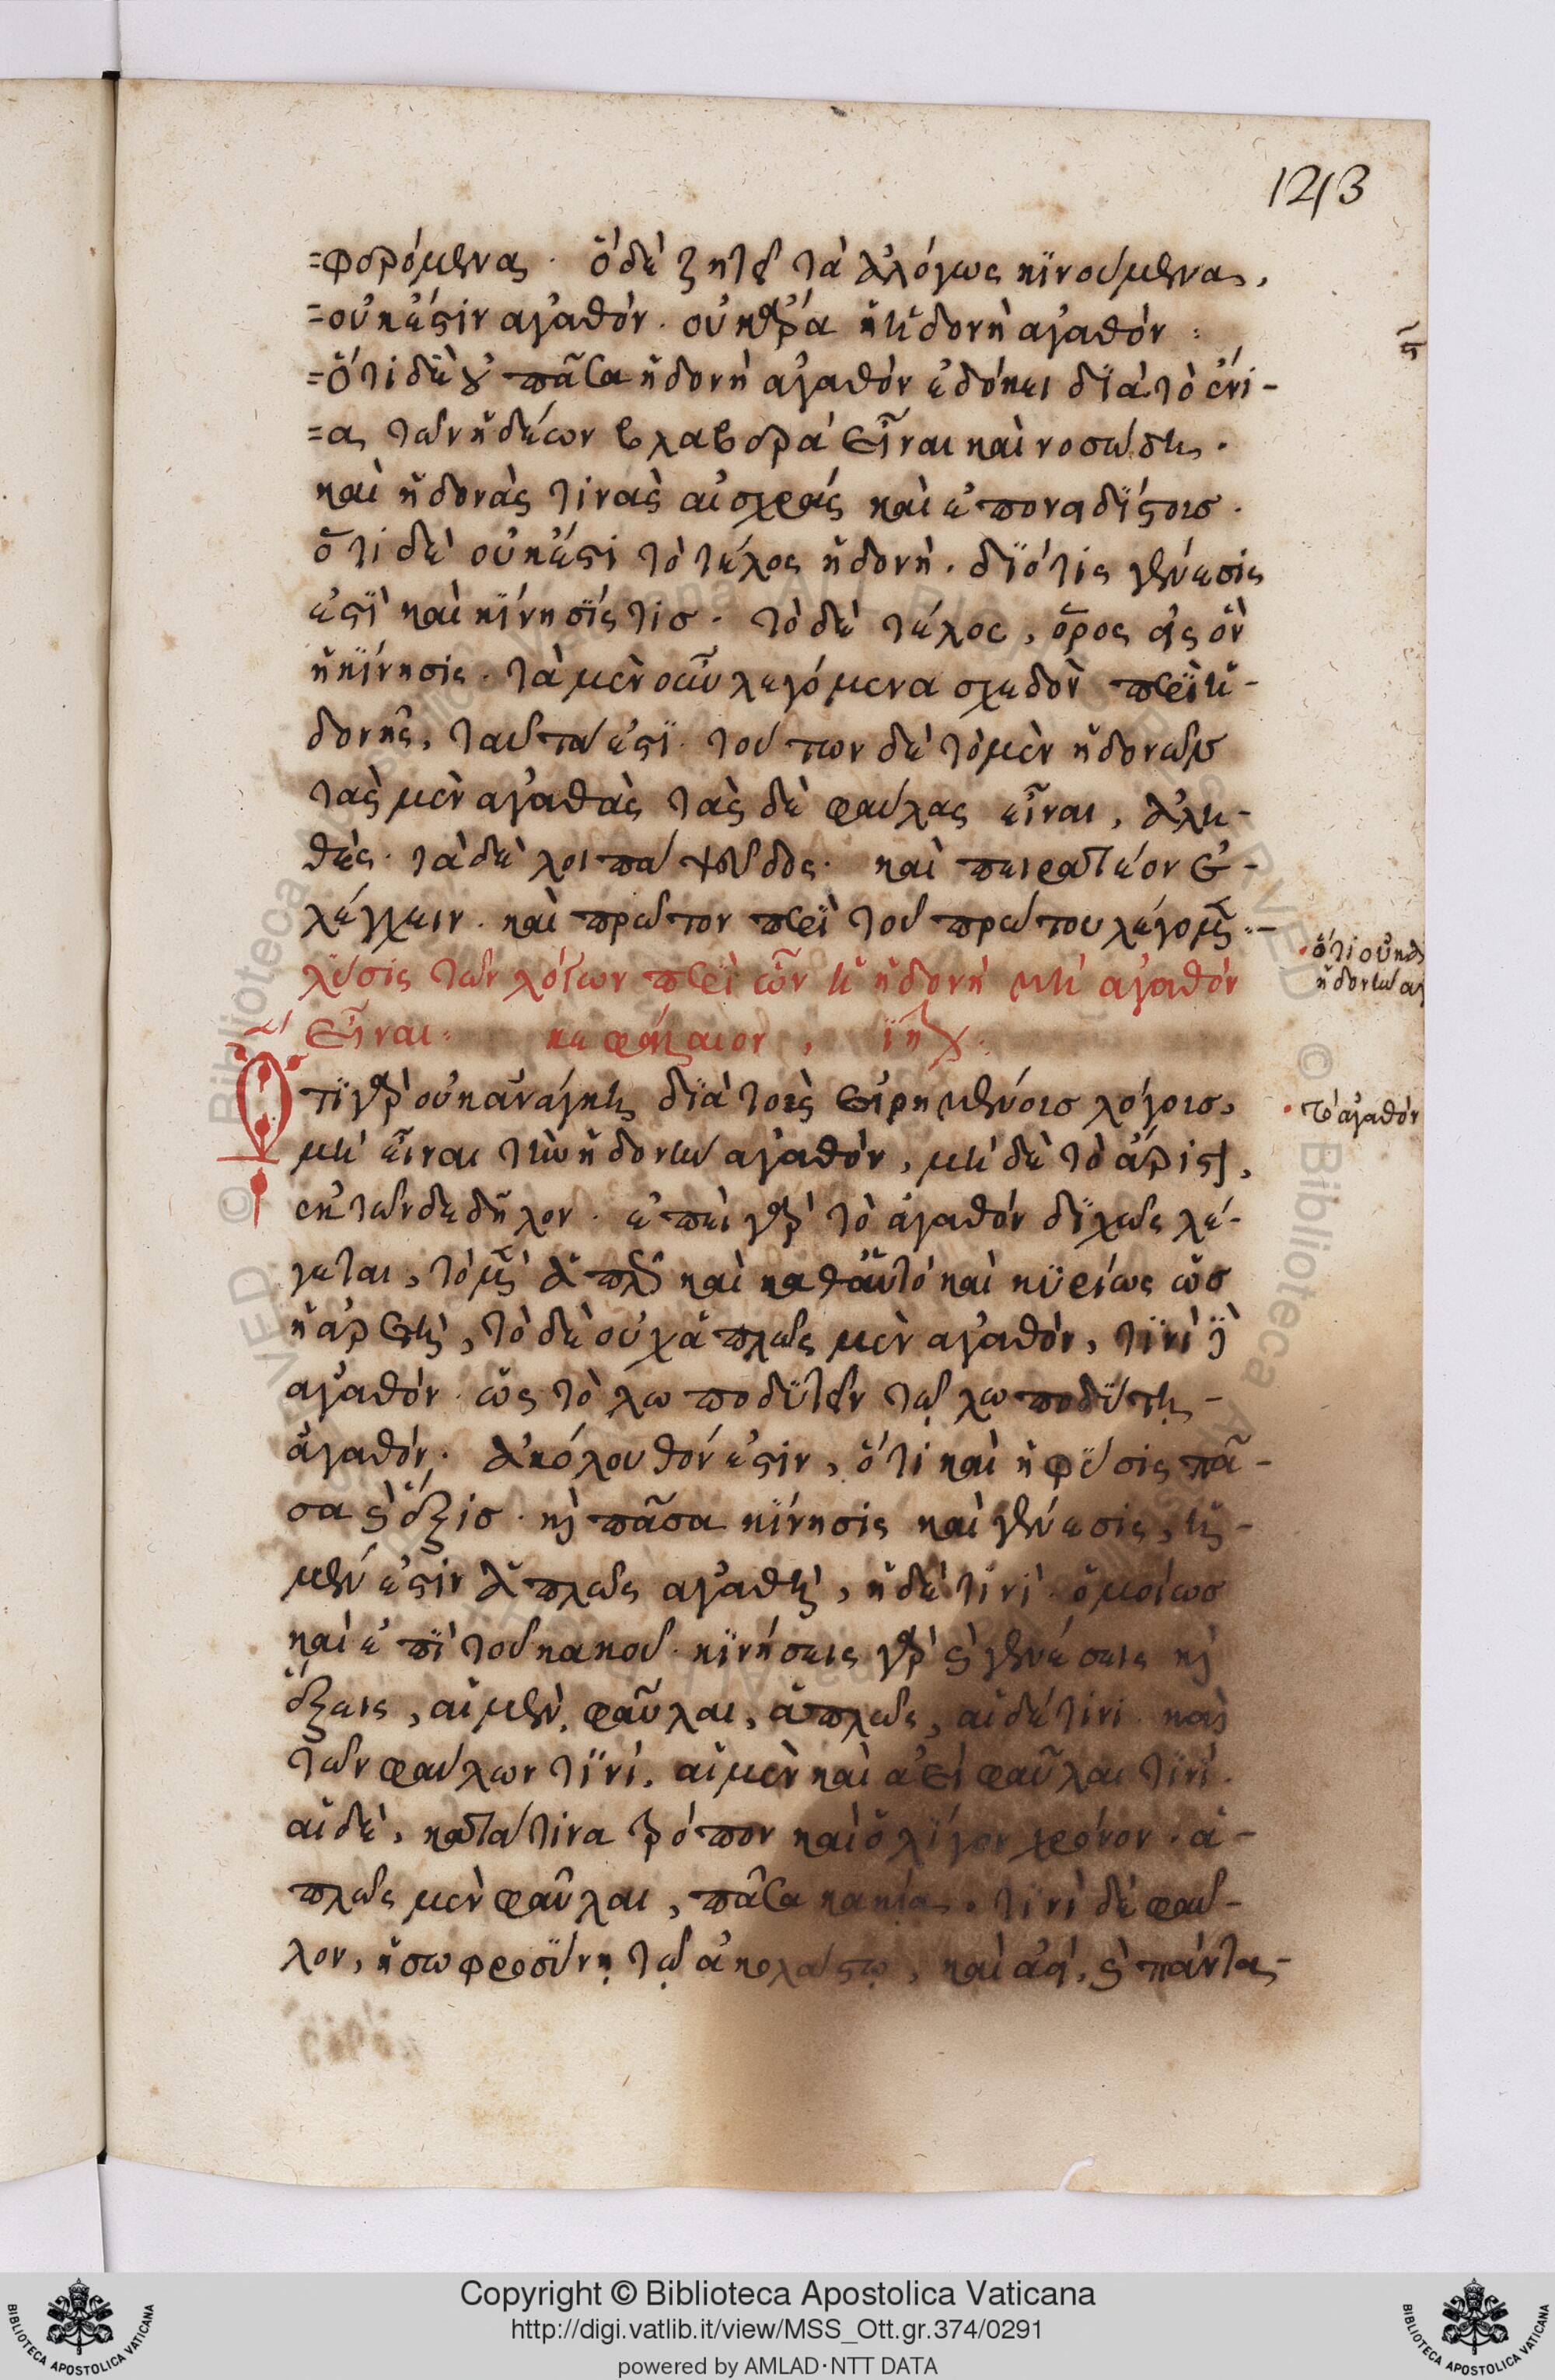 1213
=φερόμενα. ὃ δὲ ζητεῖ τὰ ἀλόγως κϊνούμενα,
=οὐκ ἔστιν ἀγαθόν. οὐκ ἄρα ἡ ἡδονὴ ἀγαθόν:
=ὅτι δὲ οὐ πᾶσα ἡδονὴ ἀγαθὸν ἐδόκει δϊὰ τὸ ἔνι-
=α τῶν ἡδέων βλαβερὰ εἶναι καὶ νοσώδη.
καὶ ἡδονάς τινας αἰσχρὰς καὶ ἐπονειδίστοις.
ὅτι δὲ οὐκ ἔστι τὸ τέλος ἡδονὴ. δϊότι γένεσίς
ἐστϊ καὶ κϊνησίς τις. τὸ δὲ τέλος, ὅρος εἰς ὃν
ἡ κίνησις. τὰ μὲν οὖν λεγόμενα σχεδὸν περὶ ἡ-
δονῆς, ταῦτά ἐστϊ. τούτων δὲ τὸ μὲν ἡδονῶν
τὰς μὲν ἀγαθὰς τὰς δὲ φαύλας εἶναι, ἀλη-
θές. τὰ δὲ λοιπὰ ψεῦδος. καὶ πειρατέον ἐ-
λέγχειν. καὶ πρῶτον περὶ τοῦ πρώτου λέγομεν.-
λύσις τῶν λόγων περὶ ὧν ἡ ἡδονὴ μὴ ἀγαθὸν
εἶναι: κεφάλαιον, ϊη
Ὅτϊ γὰρ οὐκ ἀνάγκη δϊὰ τοῖς εἰρημένοις λόγοις,
μὴ εἶναι τὴν ἡδονὴν ἀγαθόν, μὴ δὲ τὸ ἄριστον,
ἐκ τῶνδε δῆλον. ἐπεὶ γὰρ τὸ ἀγαθὸν δϊχῶς λέ-
γεται, τὸ μὲν ἁπλῶς καὶ καθ αὑτὸ καὶ κϋρίως ὡς
ἡ ἀρετὴ, τὸ δὲ οὐχ ἁπλῶς μὲν ἀγαθόν, τϊνὶ δὲ
ἀγαθόν. ὡς τὸ λωποδϋτεῖν τῷ λωποδύτῃ-
ἀγαθόν. ἀκόλουθόν ἐστιν, ὅτι καὶ ἡ φύσις πᾶ-
σα καὶ ἕξις. καὶ πᾶσα κίνησις καὶ γένεσις, ἡ-
μέν ἐστιν ἁπλῶς ἀγαθὴ, ἡ δέ τινὶ. ὁμοίως
καὶ ἐπϊ τοῦ κακοῦ. κϊνήσεις γὰρ καὶ γενέσεις καὶ
ἕξεις, αἱ μὲν φαῦλαι, ἁπλῶς, αἱ δέ τινι. καὶ
τῶν φαύλων τϊνί. αἱ μὲν καὶ ἀεὶ φαῦλαι τινί.
αἱ δὲ, κατά τινα τρόπον καὶ ὀλίγον χρόνον. ἁ-
πλῶς μὲν φαῦλαι, πᾶσα κακία. τϊνὶ δὲ φαῦ-
λον, ἡ σωφροσύνη τῷ ἀκολάστῳ, καὶ ἀεί, καὶ πάντα-
ὅτι οὐκ
ἡδονὴν
τὸ ἀγαθόν
Copyright © Biblioteca Apostolica Vaticana
http://digi.vatlib.it/view/MSS_Ott.gr.374/0291
powered by AMLAD·NTT DATA